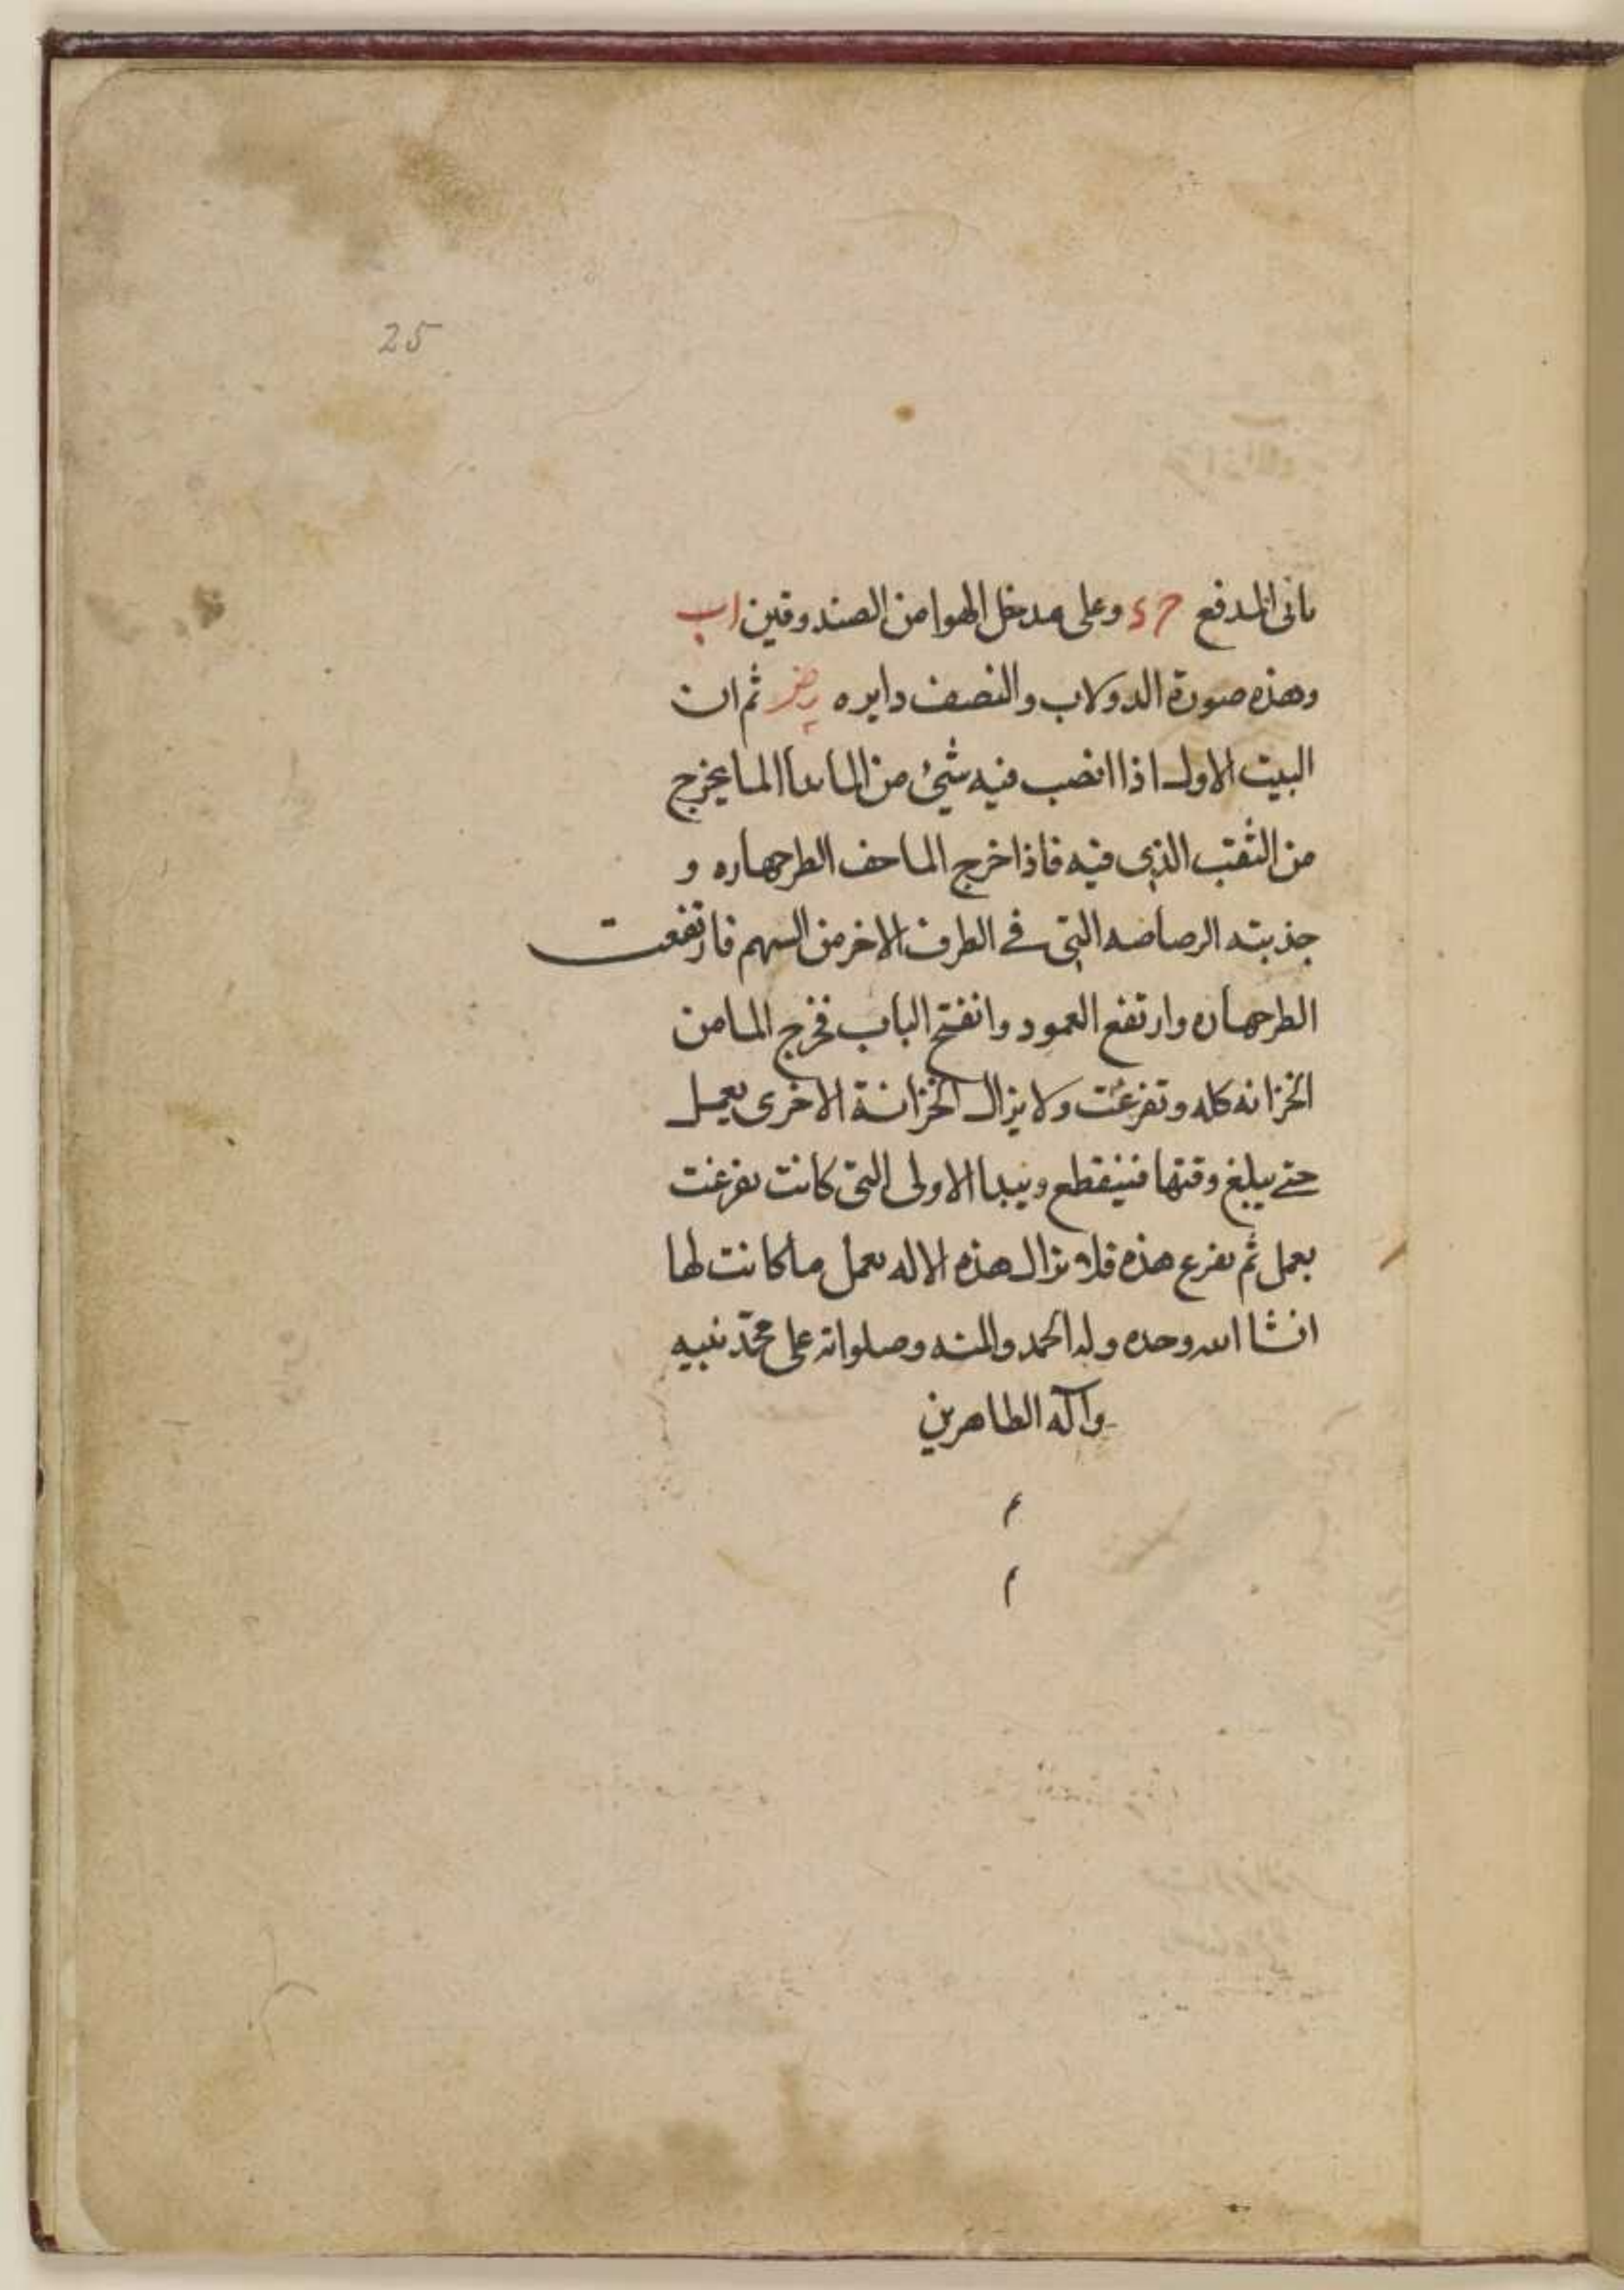 25
المدفع حـ د وعلى مدخل الهوا من الصندوقين اب
وهذه صورة الدولاب والنصف دايره ثم ان
البيت الاول اذا انصب فيه شيئ من الما الما يخرج
من الثقب الذى فيه فاذا خرج الما خف الطرجهاره و
جذبته الرصاصه التى فى الطرف الاخر من السهم فارتفعت
الطرجهاره وارتفع العمود وانفتح الباب فخرج الما من
الخزانه كله وتفرغت ولا يزال الخزانة الاخرى يعمل
حتى يبلغ وقتها فينقطع ويبدا الاولى التى كانت تفرغت
يعمل ثم تفرغ هذه فلا تزال هذه الاله تعمل ما كانت لها
انشا الله وحده وله الحمد والمنه وصلواته على محمد نبيه
وآله الطاهرين
م
م